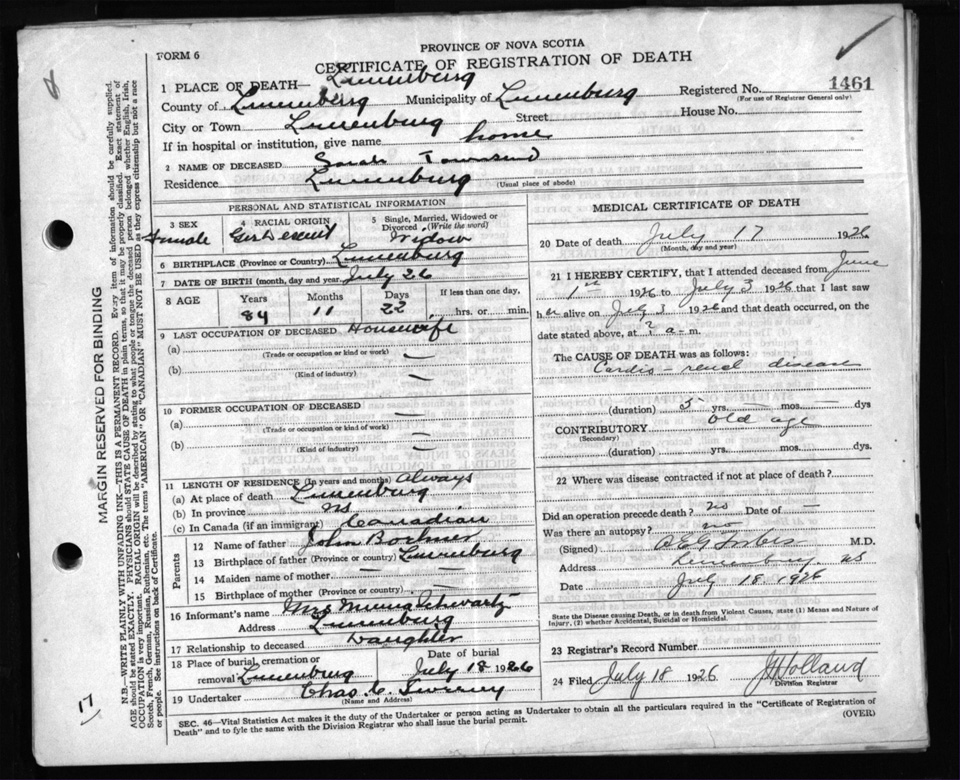 PROVINCE OF NOVA SCOTIA
FORM 6
CERTIFICATE OF REGISTRATION OF DEATH
1 PLACE OF DEATH— Lunenburg
Registered No. 1461
(For use of Registrar General only)
County of Lunenburg Municipality of Lunenburg
City or Town Lunenburg Street House No.
If in hospital or institution, give name home
2 NAME OF DECEASED Sarah Townsend
Residence Lunenburg (Usual place of abode)
PERSONAL AND STATISTICAL INFORMATION
3 SEX Female
4 RACIAL ORIGIN Ger Descent
5 Single, Married, Widowed or Divorced (Write the word) Widow
6 BIRTHPLACE (Province or Country) Lunenburg
7 DATE OF BIRTH (month, day and year) July 26
8 AGE Years 84 Months 11 Days 22 If less than one day, hrs. or min.
9 LAST OCCUPATION OF DECEASED Housewife
(a) —
(Trade or occupation or kind or work)
(b) —
(Kind of industry)
10 FORMER OCCUPATION OF DECEASED
(a) —
(Trade or occupation or kind of work)
(b) —
(Kind of industry)
11 LENGTH OF RESIDENCE (In years and months) Always
(a) At place of death Lunenburg
(b) In province NS
(c) In Canada (if an immigrant) Canadian
Parents
12 Name of father John
13 Birthplace of father (Province or country) Lunenburg
14 Maiden name of mother — —
15 Birthplace of mother (Province or country) —
16 Informant's name Mrs Schwartz
Address Lunenburg
17 Relationship to deceased Daughter
18 Place of burial, cremation or removal Lunenburg Date of burial July 18 1926
19 Undertaker Chas. C. Sweeney
(Name and Address)
MEDICAL CERTIFICATE OF DEATH
20 Date of death July 17 1926
(Month, day and year)
21 I HEREBY CERTIFY, that I attended deceased from June
1st 1926 to July 3 1926 that I last saw
her alive on July 3 1926 and that death occurred, on the
date stated above, at ? a-m.
The CAUSE OF DEATH was as follows:
Cardio-renal disease
(duration) 5 yrs. — mos. dys
CONTRIBUTORY Old age
(Secondary)
(duration) yrs. mos. dys.
22 Where was disease contracted if not at place of death?
Did an operation precede death? no Date of —
Was there an autopsy? no
(Signed) Forbes M.D.
Address Lunenburg. NS
Date July 18 1926
State the Disease causing Death, or in death from Violent Causes, state (1) Means and Nature of
Injury, (2) whether Accidental, Suicidal or Homicidal.
23 Registrar's Record Number
24 Filed July 18 1926 Holland
Division Registrar
SEC. 46—Vital Statistics Act makes it the duty of the Undertaker or person acting as Undertaker to obtain all the particulars required in the "Certificate of Registration of
Death" and to fyle the same with the Division Registrar who shall issue the burial permit.
(OVER)
MARGIN RESERVED FOR BINDING
N.B.—WRITE PLAINLY WITH UNFADING INK—THIS IS A PERMANENT RECORD. Every item of information should be carefully supplied.
AGE should be stated EXACTLY. PHYSICIANS should STATE CAUSE OF DEATH in plain terms, so that it may be properly classified. Exact statement of
OCCUPATION is very important. RACIAL ORIGIN will be described by stating to what people or tongue the deceased person belonged whether English, Irish,
Scotch, French, German, Russian, Ruthenian, etc. The terms "AMERICAN" OR "CANADIAN" MUST NOT BE USED as they express citizenship but not a race
or people. See instructions on back of Certificate.
17